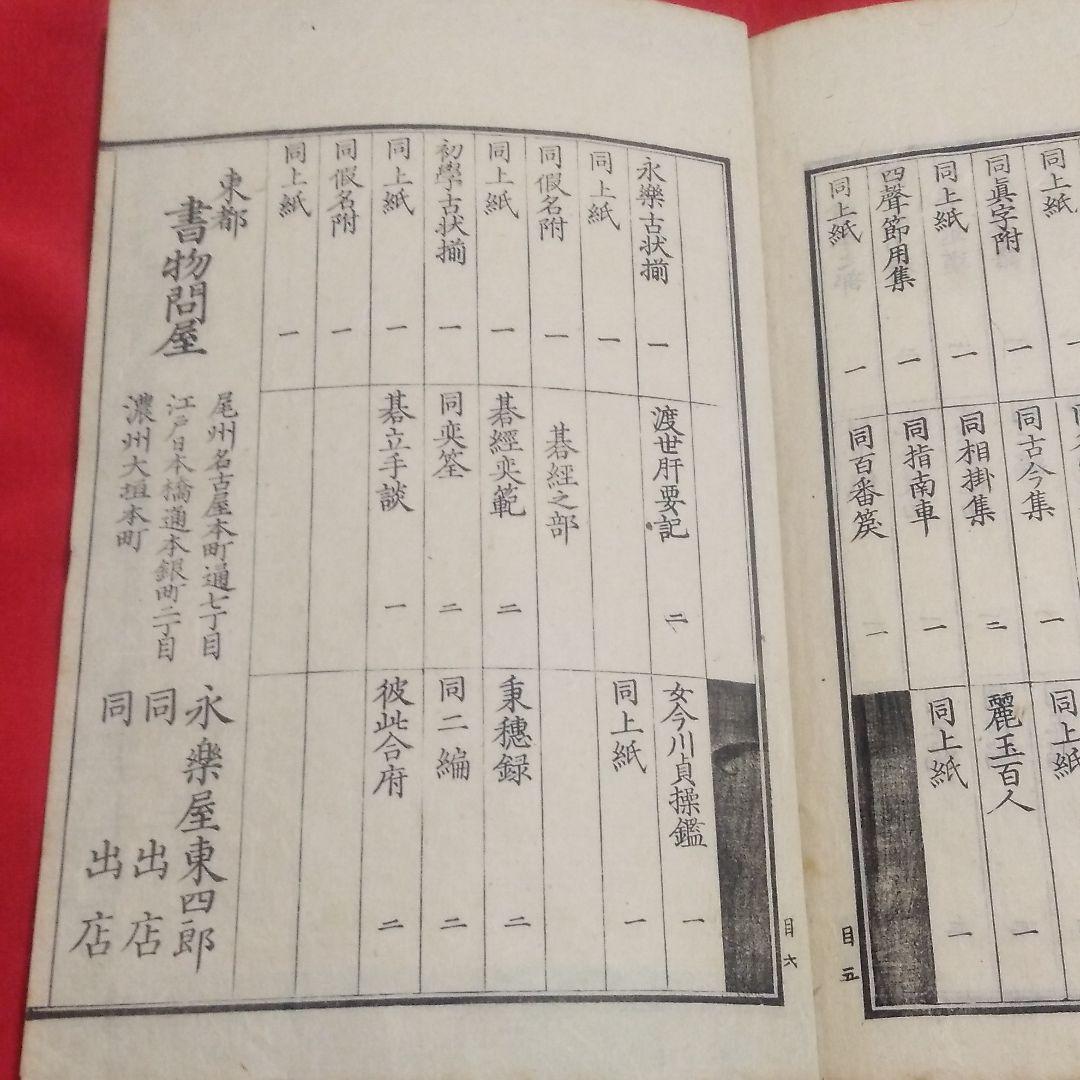 同上紙 一
同眞字附 一
同上紙 一
四聲節用集 一
同上紙 一
同古今集 一
同相掛集 二
同指南車 一
同百番
同上紙
麗玉百人 一
同上紙
目五
目六
永樂古状揃 一
同上紙 一
同假名附 一
同上紙 一
初學古状揃 一
同上紙 一
同假名附 一
同上紙 一
渡世肝要記 二
碁經之部
碁經奕範 二
同奕筌 二
碁立手談 一
女今川貞操鑑 一
同上紙 一
秉穗録 二
同二編 二
彼此合府 二
東都
書物問屋
尾州名古屋本町通七丁目 永樂屋東四郎
江戸日本橋通本銀町二丁目 同 出店
濃州大垣本町 同 出店